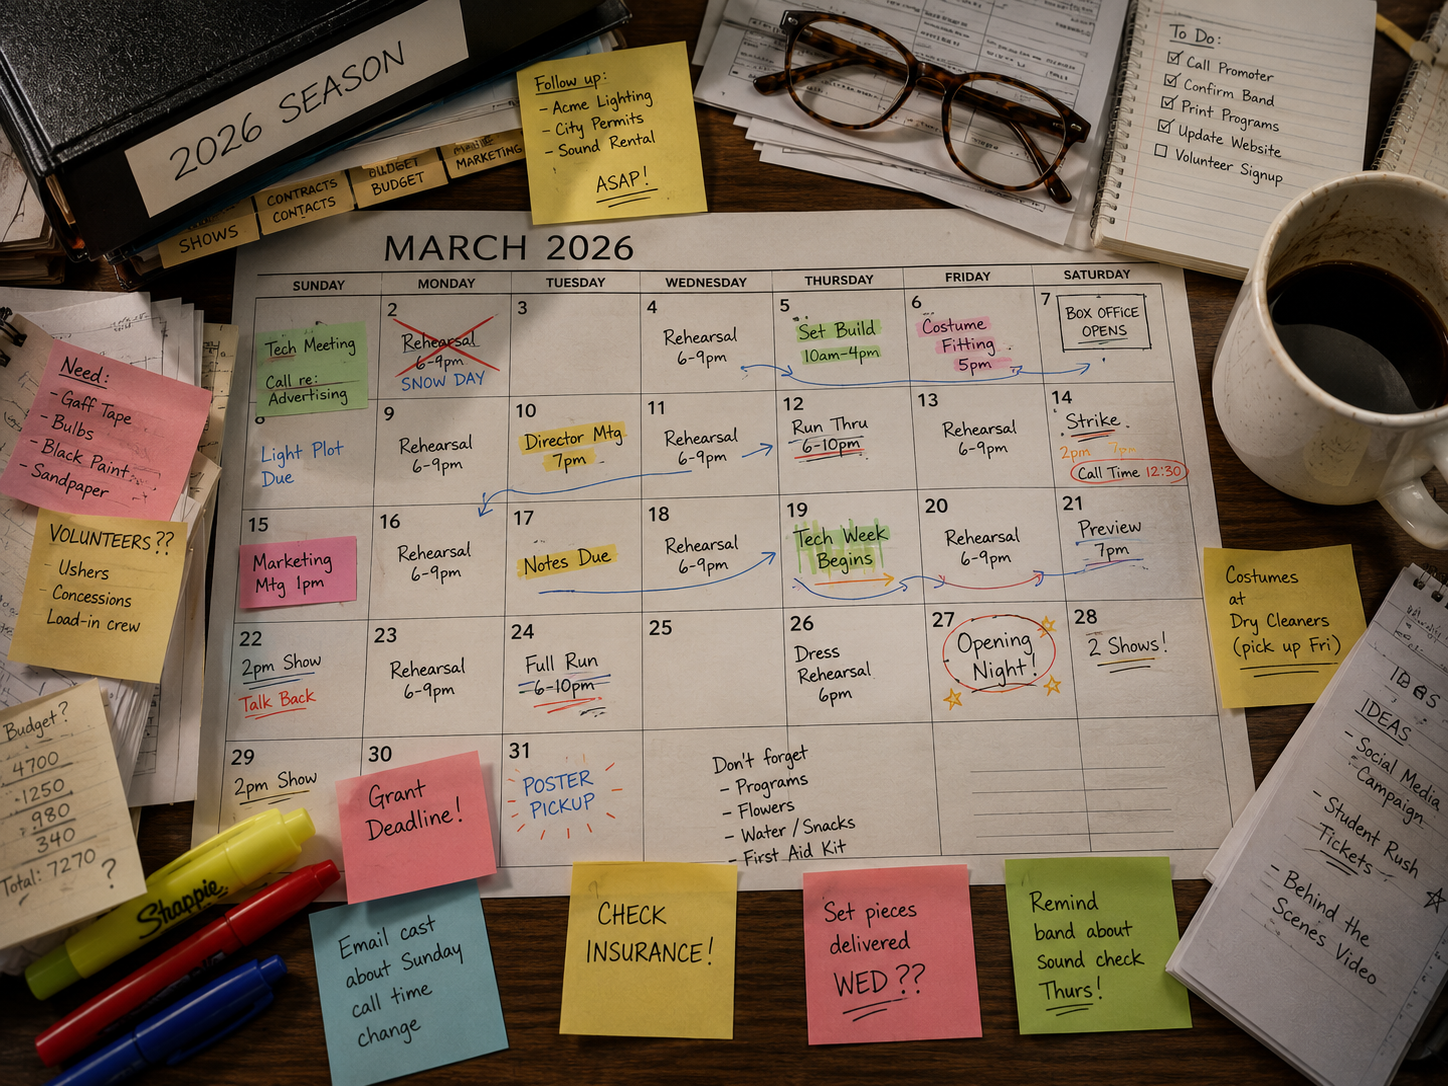 2026 SEASON
SHOWS
CONTRACTS
CONTACTS
BUDGET
BUDGET
MARKETING
Follow up:
- Acme Lighting
- City Permits
- Sound Rental
ASAP!
To Do:
☑ Call Promoter
☑ Confirm Band
☑ Print Programs
☑ Update Website
☐ Volunteer Signup
MARCH 2026
SUNDAY MONDAY TUESDAY WEDNESDAY THURSDAY FRIDAY SATURDAY
Tech Meeting
Call re:
Advertising
2
Rehearsal
6-9pm
SNOW DAY
3
4
Rehearsal
6-9pm
5
Set Build
10am-4pm
6
Costume
Fitting
5pm
7
BOX OFFICE
OPENS
8
Light Plot
Due
9
Rehearsal
6-9pm
10
Director Mtg
7pm
11
Rehearsal
6-9pm
12
Run Thru
6-10pm
13
Rehearsal
6-9pm
14
Strike
2pm 7pm
Call Time 12:30
15
Marketing
Mtg 1pm
16
Rehearsal
6-9pm
17
Notes Due
18
Rehearsal
6-9pm
19
Tech Week
Begins
20
Rehearsal
6-9pm
21
Preview
7pm
22
2pm Show
Talk Back
23
Rehearsal
6-9pm
24
Full Run
6-10pm
25
26
Dress
Rehearsal
6pm
27
Opening
Night!
28
2 Shows!
29
2pm Show
30
Grant
Deadline!
31
POSTER
PICKUP
Don't forget
- Programs
- Flowers
- Water / Snacks
- First Aid Kit
Need:
- Gaff Tape
- Bulbs
- Black Paint
- Sandpaper
VOLUNTEERS??
Ushers
Concessions
Load-in crew
Budget?
4700
1250
980
340
Total: 7270
?
Sharpie
Email cast
about Sunday
call time
change
CHECK
INSURANCE!
Set pieces
delivered
WED??
Remind
band about
sound check
Thurs!
Costumes
at
Dry Cleaners
(pick up Fri)
IDEAS
- Social Media
Campaign
- Student Rush
Tickets
- Behind the
Scenes Video